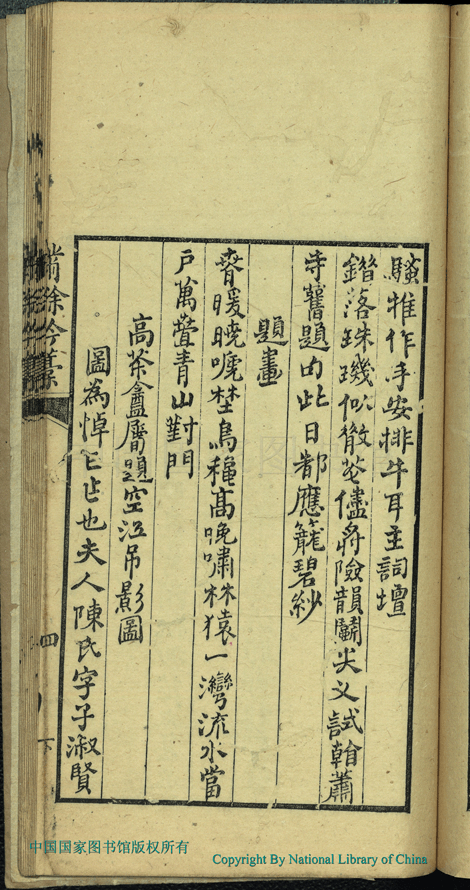 騷雅作手安排牛耳主詞壇
錯落珠璣似散花儘將險韻鬭尖叉試看蕭
寺舊題由此日都應籠碧紗
題畫
春暖曉嗁埜鳥穐高晚嘯林猿一灣流水當
戶萬疊青山對門
高茶盦屬題空江吊影圖
圖為悼亡作也夫人陳氏字子淑賢
四
下
中国国家图书馆版权所有
Copyright By National Library of China